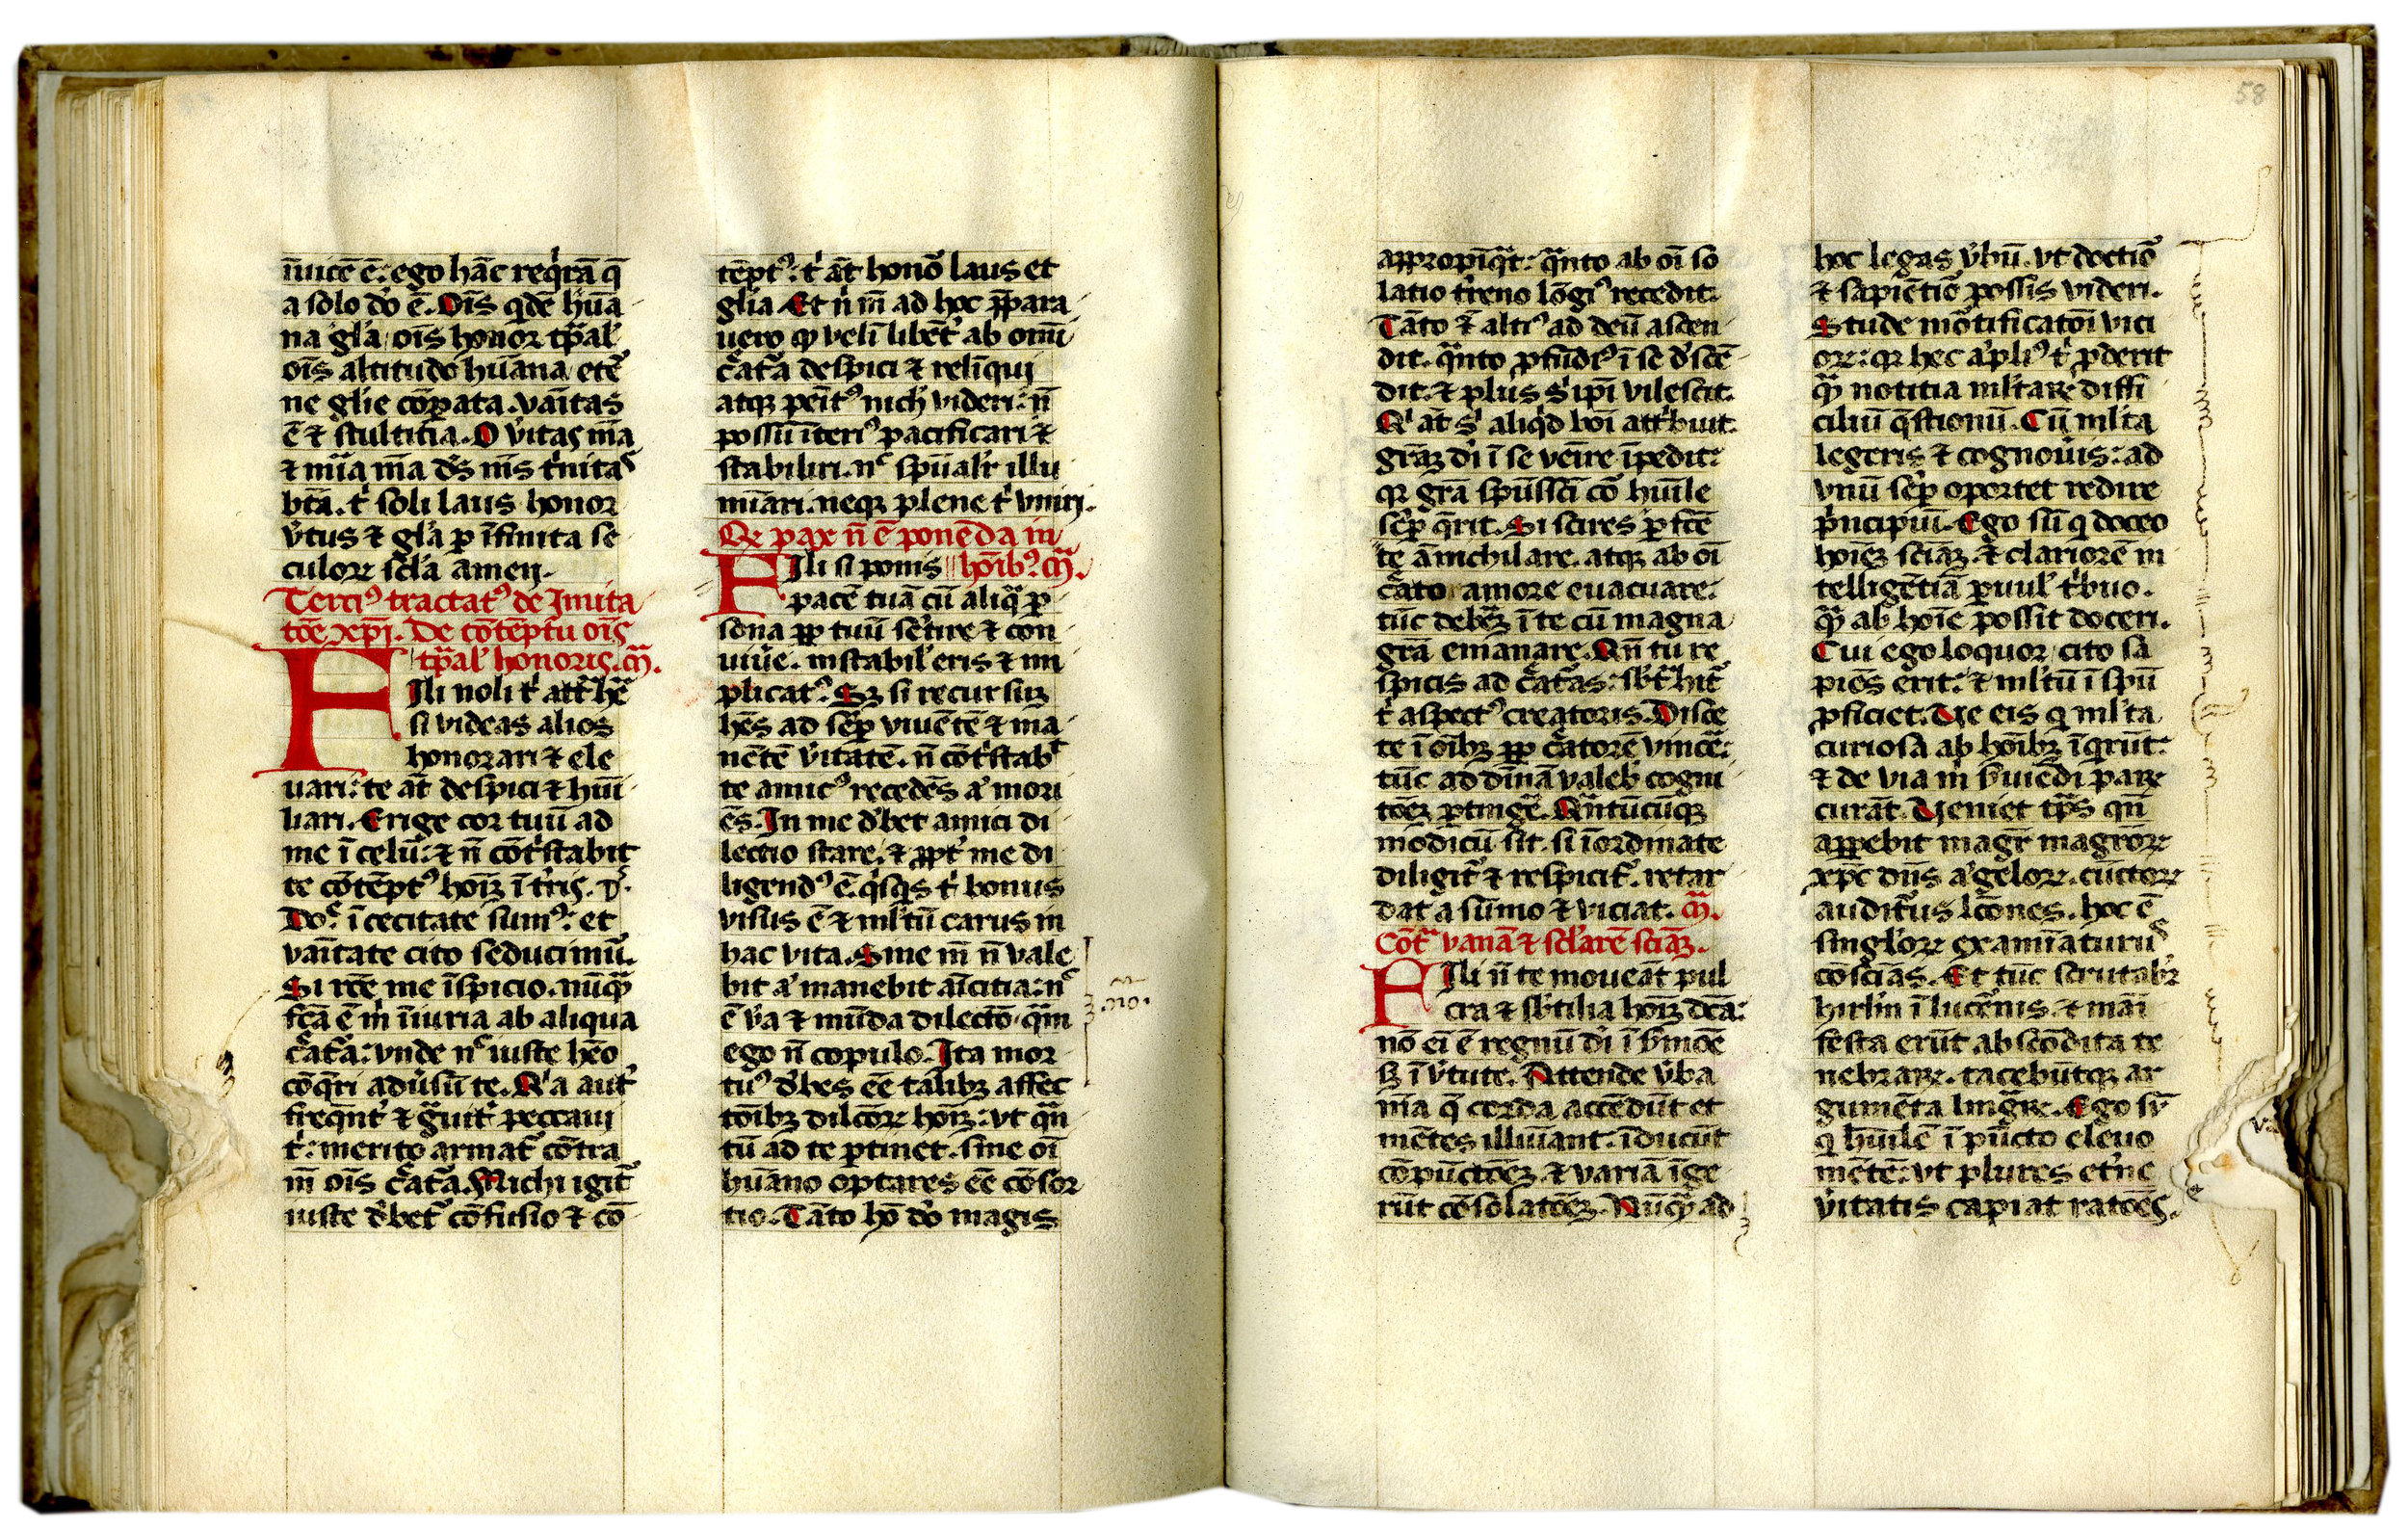 īuicē ē: ego hāc req̇rā q̄
a solo do ē. Oīs qde hūa
na gl'a oīs honor tp̄al'
oīs altitudo hūana et'e
ne glīe cōp̄ata. vāitas
ē ⁊ stultitia. O v'itas m̄a
⁊ mīa m̄a d's m̄s t'nitas
btā. t' soli laus honor
v'tus ⁊ gl'a p īfinita se
culoꝝ scl'a amen.
Terciꝰ tractatꝰ de Imita
tōe xp̄i. De cōtēptu oīs
tp̄al' honoris. cm̄.
FIli noli t' att'hē
si videas alios
honorari ⁊ ele
uari: te āt despici ⁊ hūi
liari. Erige cor tuū ad
me ī celū: ⁊ n̄ cōt'stabit
te cōtēptꝰ hoīꝫ ī t'ris. D'.
Doᶜ ī cecitate sumꝰ: et
vāitate cito seducimū.
Si rc̄e me īspicio. nūq̄ꝫ
fc̄a ē m̄ īiuria ab aliqua
c̄at'a: vnde nᶜ iuste hēo
cōq̄ri adu'sū te. Q'a aut'
freq̄nt' ⁊ g̃uit' peccaui
t': merito armat' cōtra
m̄ oīs c̄at'a. Michi igit'
iuste d'bet' cōfusio ⁊ cō
tēptꝰ: t' āt honō laus et
gl'ia Et n' m̄ ad hoc p̄para
uero ꝙ veli libēt' ab omī
c̄at'a despici ⁊ relīqui
atqꝫ penitꝰ nich' videri: n̄
possū īteriꝰ pacificari ⁊
stabiliri. nᶜ spūal'r illu
mīari. neqꝫ plene t' vniri.
Qꝛ pax n̄ ē ponēda in
FIli si ponis hoībꝰ. cm̄.
pacē tuā cū aliq̄ p
sona ꝓp tuū sētire ⁊ con
viue'. instabil' eris ⁊ im
plicatꝰ. Sꝫ si recursuꝫ
hēs ad sēp viuētē ⁊ ma
nētē v'itatē. n̄ cōt'stabᵗ
te amicꝰ recedēs a' mori
ēs. In me d'bet amici di
lectio stare. ⁊ ꝓpt' me di
ligendꝰ ē. q'sqs t' bonus
visus ē ⁊ ml'tū carus in
hac vita. Sine m̄ n̄ vale
bit a' manebit aīcitia: nᶜ
ē v'a ⁊ mūda dilectō. q̄m
no.
ego n̄ copulo. Ita mor
tuꝰ d'bes ēē talibꝫ affec
tōibꝫ dil'coꝝ hoīꝫ: vt q̄n
tū ad te ptinet. sine oī
hūano optares ēē cōsor
tio. Tāto hō do magis
58
appropīq̄t: q̄nto ab oī so
latio t'reno lōgiꝰ recedit.
Tāto ⁊ altiꝰ ad deū ascen
dit. q̄nto ꝓfūdiꝰ ī se d'scē
dit. ⁊ plus s' ipī vilescit.
Q' āt s' aliq̇d boī attribuit.
grāꝫ di ī se vēire īpedit:
qꝛ grā spūssc̄i cō hūile
sēp q̄rit. Si scires pfcē
te ānichilare. atqꝫ ab oī
c̄ato amore euacuare:
tūc debeꝫ ī te cū magna
grā emanare. Qn̄ tu re
spicis ad c̄at'as: sbt'hit'
t' aspectꝰ creatoris. Disce
te ī oībꝫ ꝓp c̄atorē vincē:
tūc ad dīnā valeb' cogni
tōeꝫ ptinge'. Qn̄tūcūqꝫ
modicū sit. si iordinate
diligit' ⁊ respicit'. retar
dat a sūmo ⁊ viciat. cm̄.
Cōt̃ vanā ⁊ scl'arē sciāꝫ.
FIli n̄ te moueāt pul
cra ⁊ sbtilia hoīꝫ dc̄a:
nō ei ē regnū di ī s'mōe
sꝫ ī v'tute. Attende v'ba
m̄a q̄ corda accēdūt et
mētes illuīant: īducūt
cōpūctōeꝫ. ⁊ variā īge
rūt cōsolatōeꝫ. Nūq̄ꝫ ad
hoc legas v'bū. vt doctiō
⁊ sapiētiō possis videri.
Stude mōtificatōi vici
oꝝ: qꝛ hec a'pliꝰ t' ꝓderit
q̄ꝫ notitia ml'taꝝ diffi
ciliū q̄stionū. Cū ml'ta
legeris ⁊ cognou'is: ad
vnū sēp oportet redire
p'ncipiū. Ego sū q doceo
hoīeꝫ sciāꝫ. ⁊ clariorē in
telligētiā puul' t'buo.
q̄ꝫ ab hoīe possit doceri.
Cui ego loquor cito sa
piēs erit: ⁊ ml'tū ī spū
ꝓficiet. Ve eis q ml'ta
curiosa ab hoībꝫ īq̇rūt:
⁊ de via m̄ s'uiēdi paꝝ
curāt. Veniet tp̄s qn̄
appebit magr̄ magr̄oꝝ
xp̄c dn̄s a'geloꝝ. cūctoꝝ
auditurus lc̄ones. hoc ē
singl'oꝝ examīaturus
cōsciās. Et tūc scrutabꝛ
hirl'm ī lucēnis. ⁊ māi
festa erūt abscōdita te
nebraꝝ. tacebūtqꝫ ar
gumēta linguaꝝ. Ego sū
q hūilē ī pūcto eleuo
mētē: vt plures et'ne
v'itatis capiat ratōes.